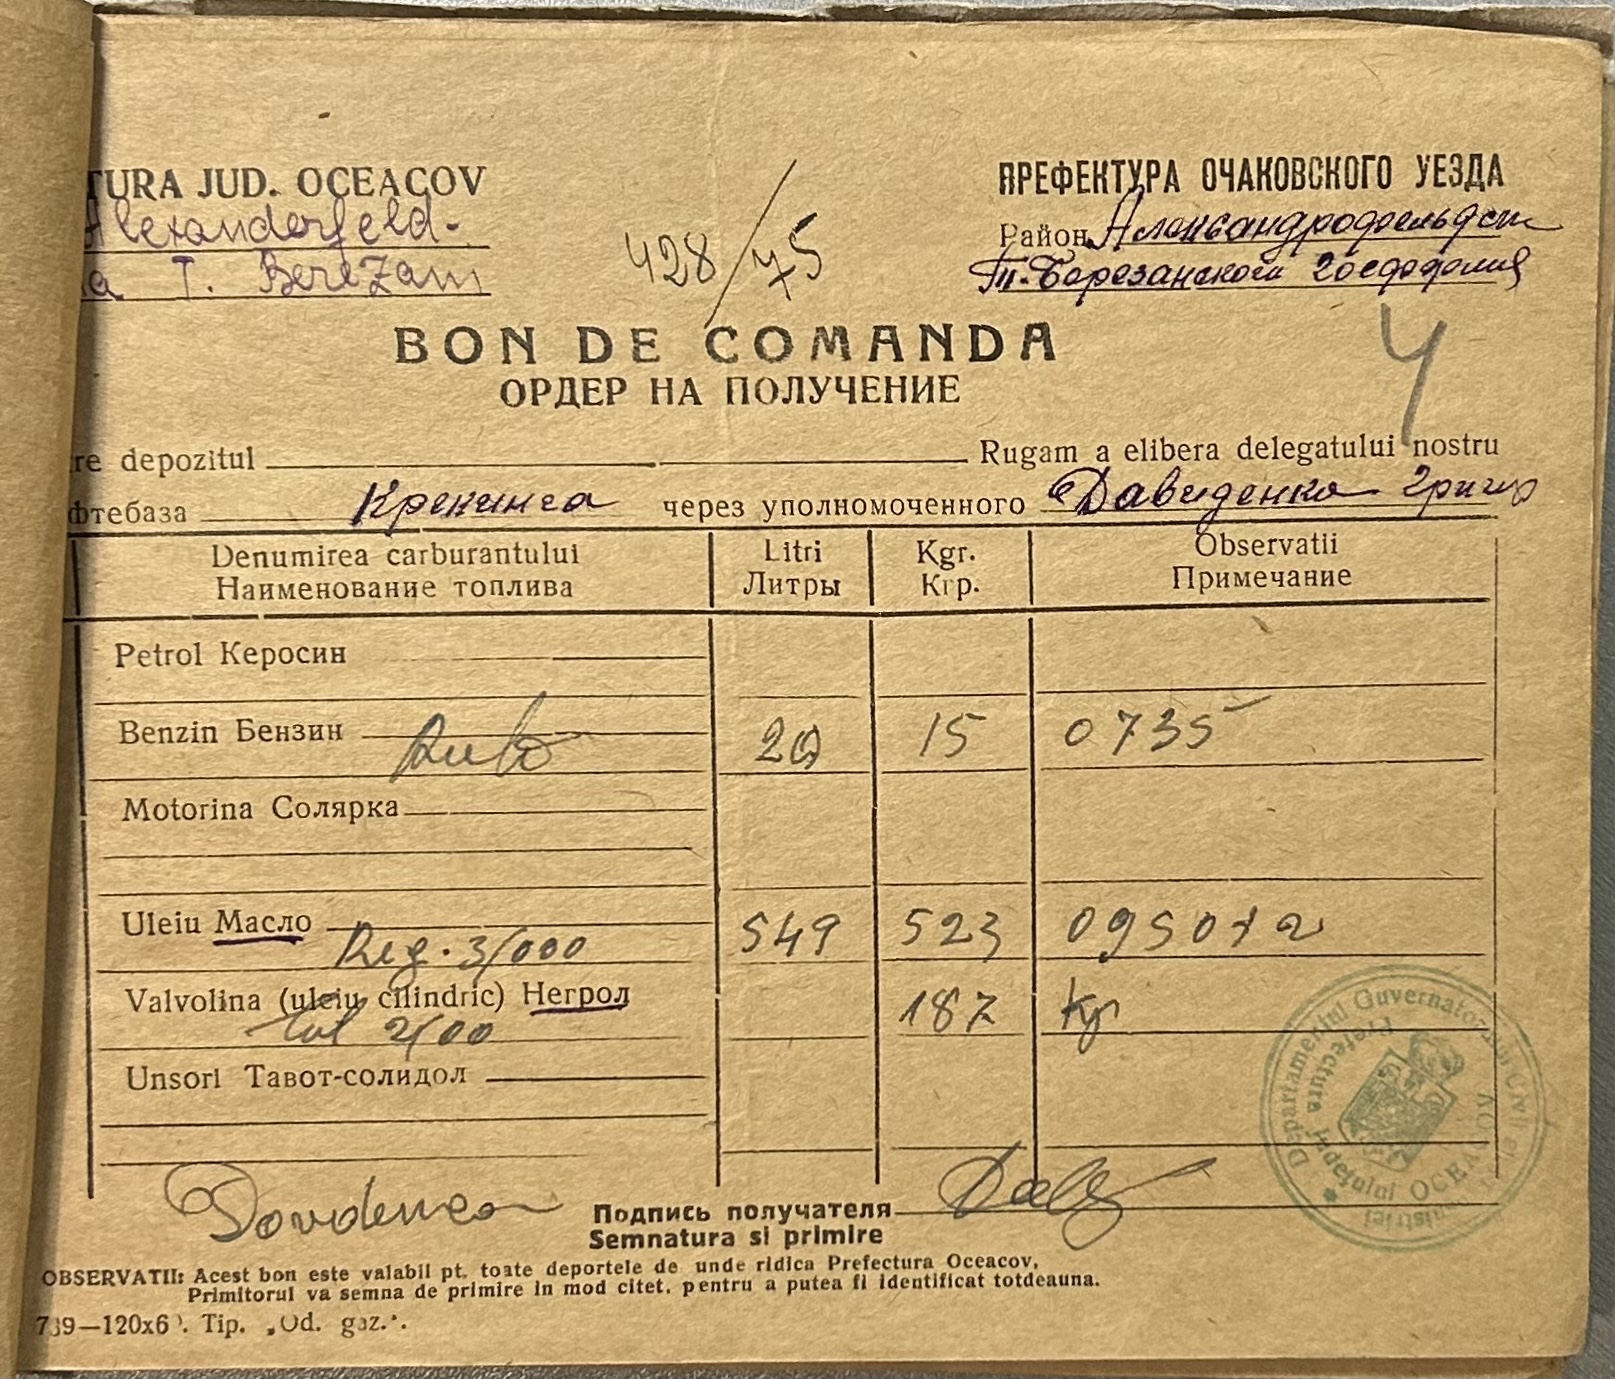 TURA JUD. OCEACOV
Alexanderfeld-
a T. Berezani
428/75
ПРЕФЕКТУРА ОЧАКОВСКОГО УЕЗДА
Район Александрофельдск
Т-Березанского
4
BON DE COMANDA
ОРДЕР НА ПОЛУЧЕНИЕ
re depozitul Rugam a elibera delegatului nostru
фтебаза Крекинга через уполномоченного Давиденко Григор
Denumirea carburantului Litri Kgr. Observatii
Наименование топлива Литры Кгр. Примечание
Petrol Керосин
Benzin Бензин 20 15 0735
Motorina Солярка
Uleiu Масло 549 523
Reg. 3/000
Valvolina (uleiu cilindric) Негрол 187 kg
2/00
Unsori Тавот-солидол
Departamentul Guvernatorului Civil
Prefectura Județului OCEACOV
Davidenco
Подпись получателя
Semnatura si primire
OBSERVATII: Acest bon este valabil pt. toate deportele de unde ridica Prefectura Oceacov.
Primitorul va semna de primire in mod citet, pentru a putea fi identificat totdeauna.
739—120x6 . Tip. „Od. gaz.".